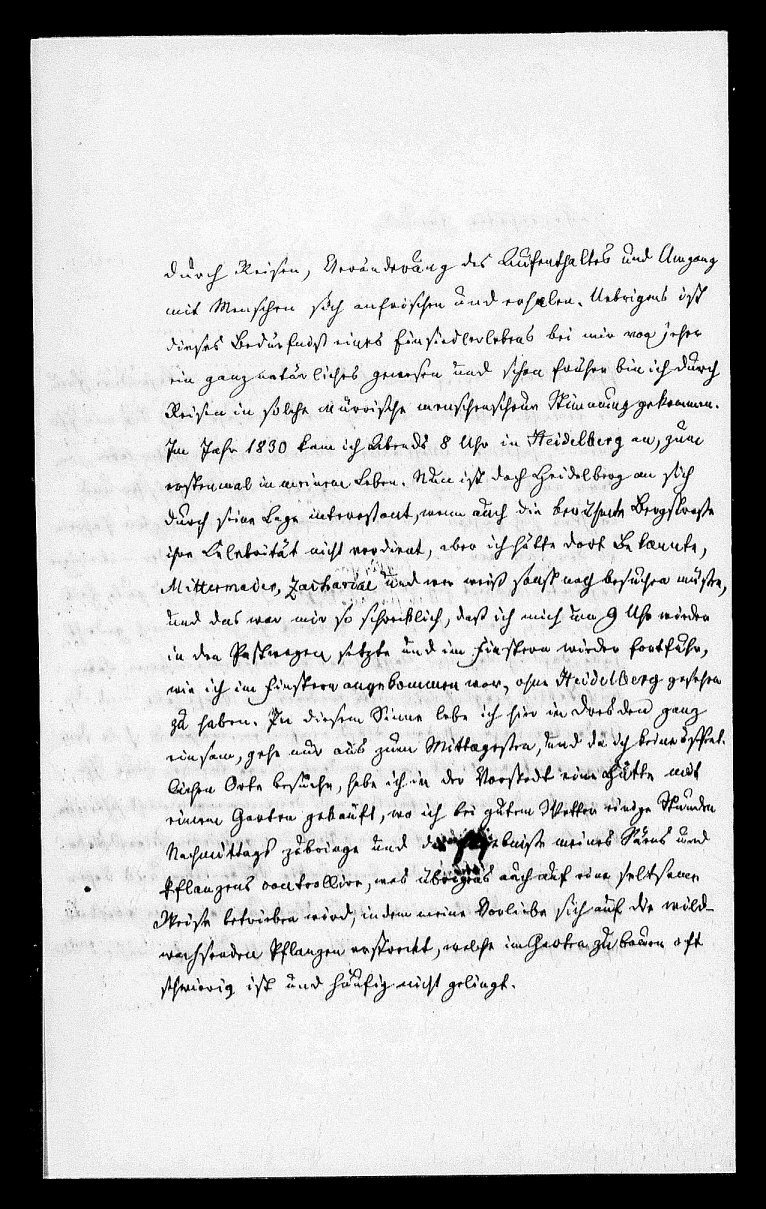 durch Reisen, Veränderung des Aufenthaltes und Umgang
mit Menschen sich anfrischen und erholen. Uebrigens ist
dieses Bedürfniß eines Einsiedlerlebens bei mir von jeher
ein ganz natürliches gewesen und schon früher bin ich durch
Reisen in solche närrische menschenscheue Stimmung gekommen.
Im Jahr 1830 kam ich Abends 8 Uhr in Heidelberg an, zum
erstenmal in meinem Leben. Nun ist doch Heidelberg an sich
durch seine Lage interessant, wenn auch die berühmte Bergstrasse
ihre Celebrität nicht verdient, aber ich hätte dort Bekannte,
Mittermaier, Zachariae und wer weiß sonst noch besuchen müssen,
und das war mir so schrecklich, daß ich mich um 9 Uhr wieder
in den Postwagen setzte und im Finstern wieder fortfuhr,
wie ich im Finstern angekommen war, ohne Heidelberg gesehen
zu haben. In diesem Sinne lebe ich hier in Dresden ganz
einsam, gehe nur aus zum Mittagessen, und da ich keine öffent-
lichen Orte besuche, habe ich in der Vorstadt eine Hütte mit
einem Garten gekauft, wo ich bei gutem Wetter einige Stunden
Nachmittags zubringe und die Ergebnisse meines Säens und
Pflanzens controllire, was übrigens auch auf eine seltsame
Weise betrieben wird, indem meine Vorliebe sich auf die wild-
wachsenden Pflanzen erstreckt, welche im Garten zu bauen oft
schwierig ist und häufig nicht gelingt.